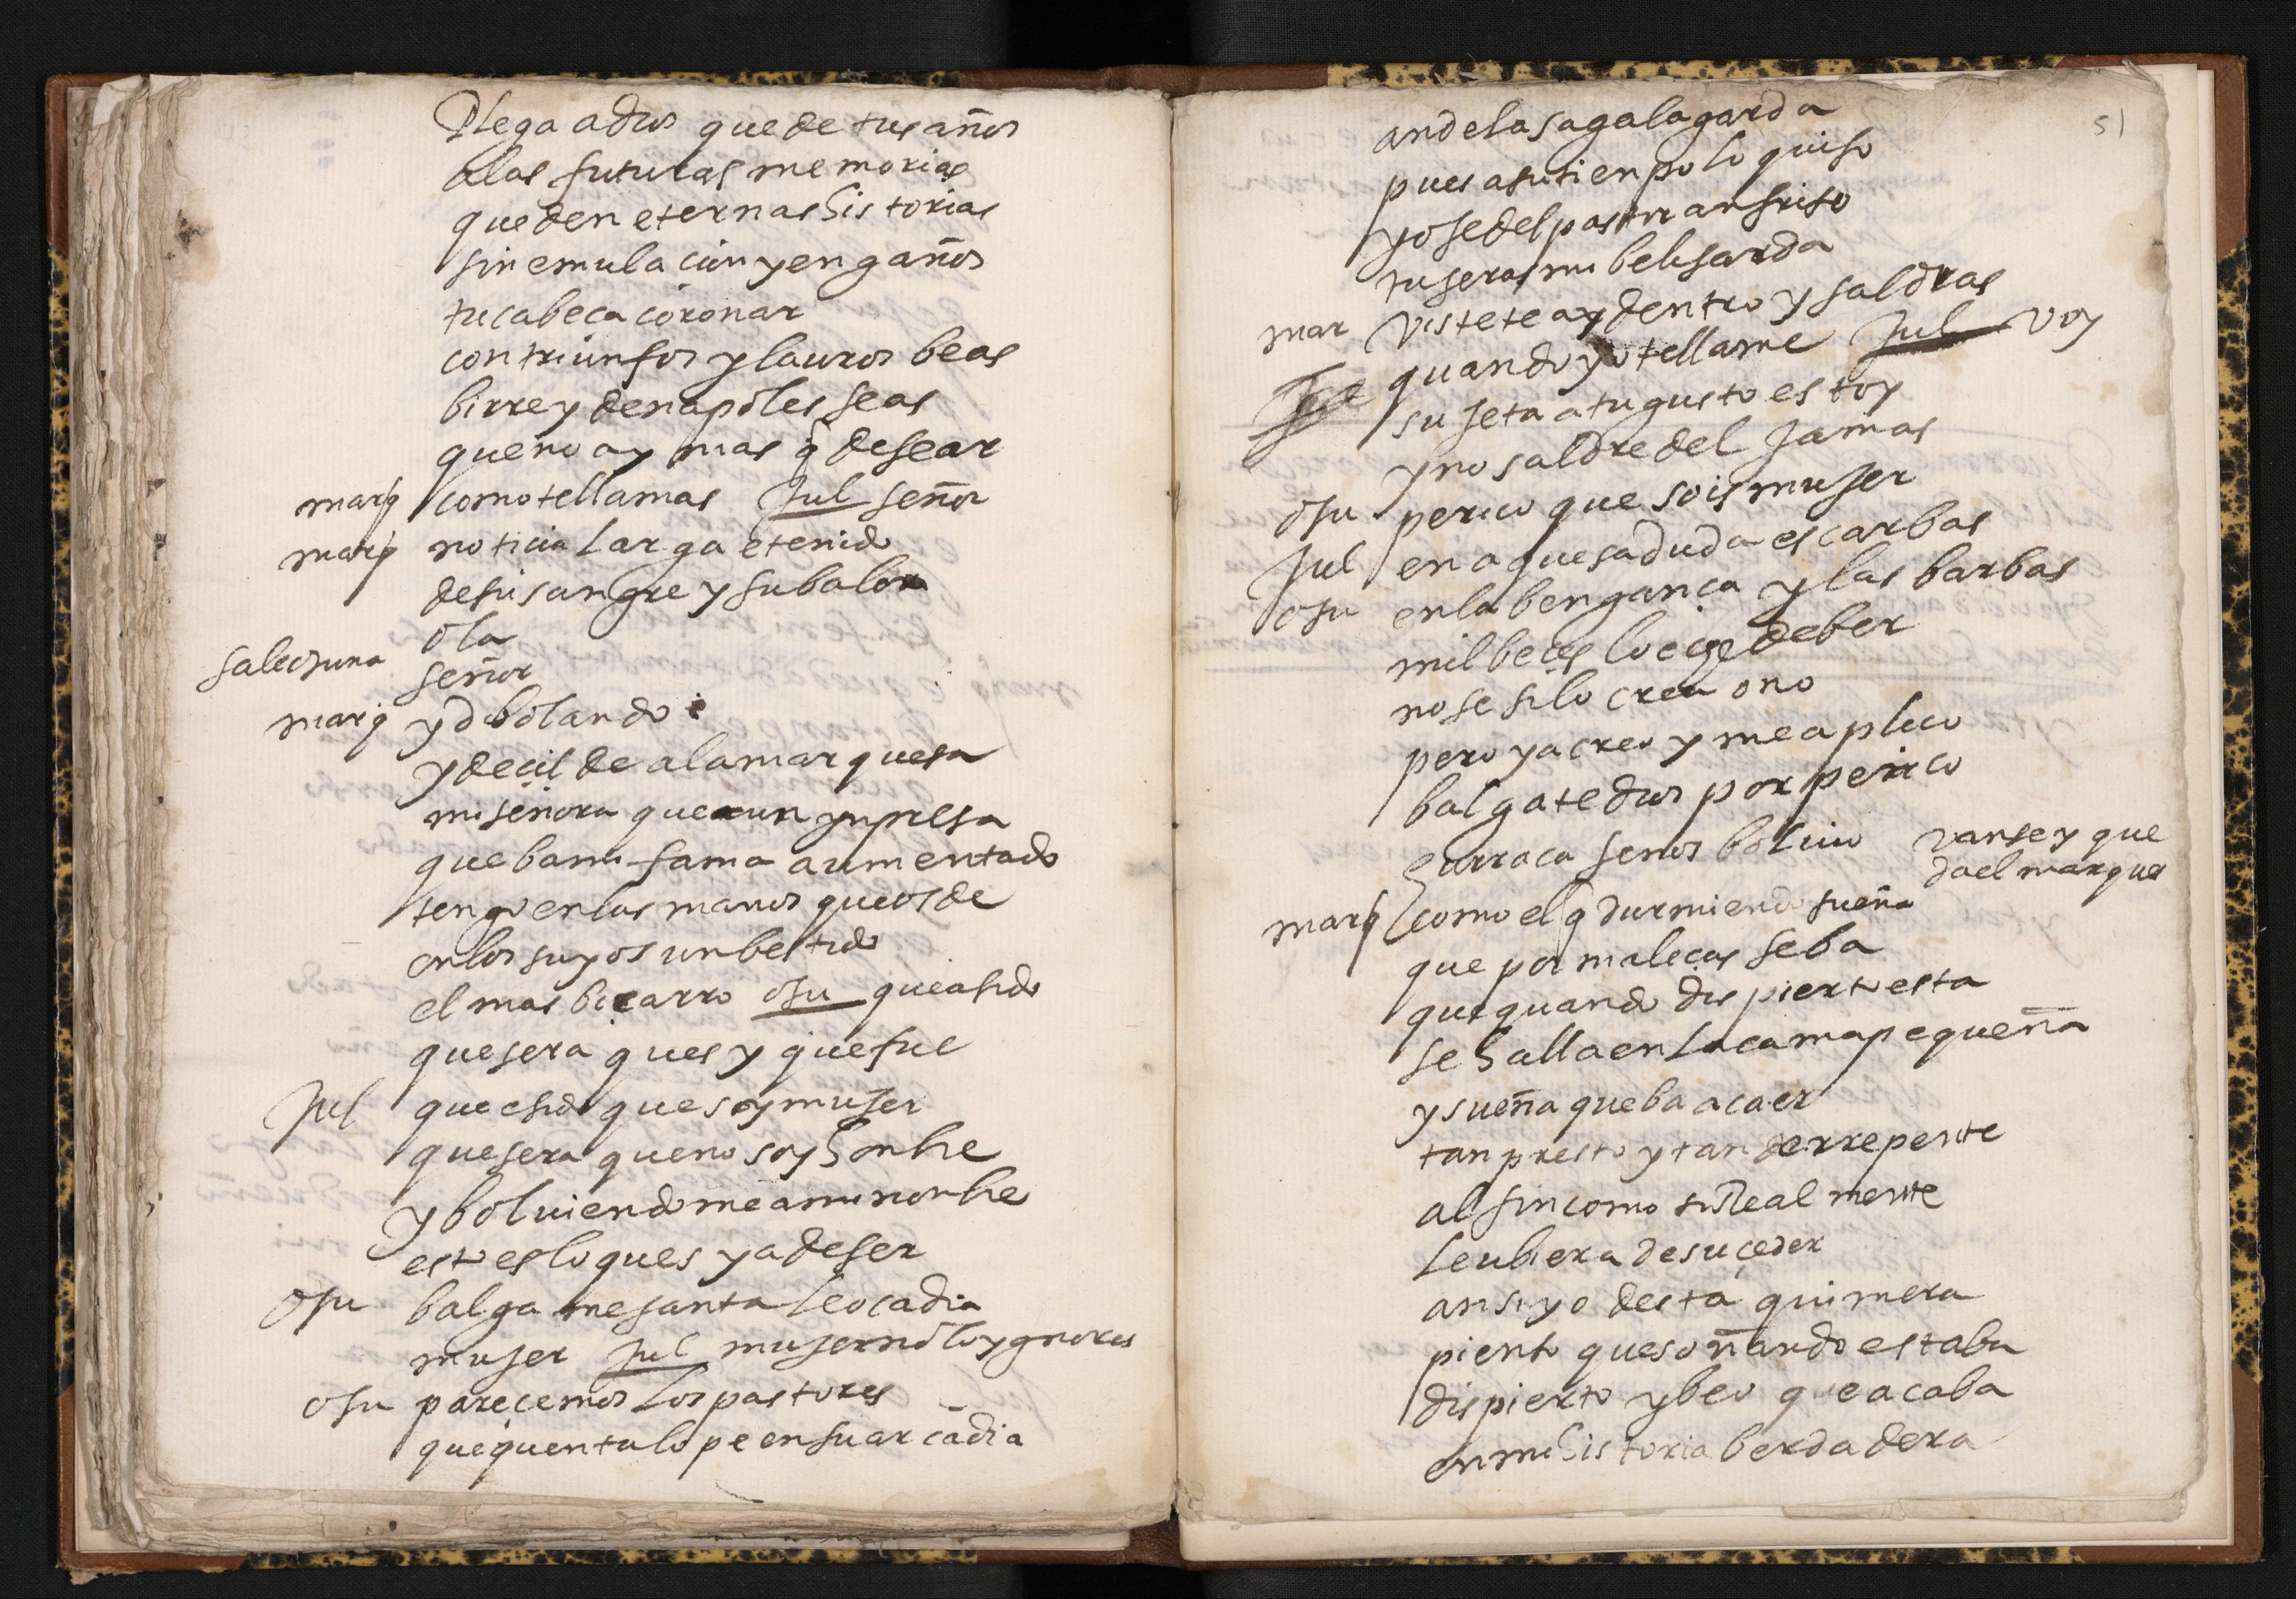 Plega a dios que de tus años
a las futuras memorias
queden eternas historias
sin emulacion y engaños
tu cabeca coronar
con triunfos y lauros beas
birrey de napoles seas
que no ay mas q̃ desear
marq como te llamas Jul señor
marq noticia larga e tenido
de su sangre y su balor
ola
sale osuna señor
marq yd bolando
y decilde a la marquesa
mi señora que a un ynpresa
que ba mi fama aumentado
tengo en las manos que os de
en los suyos un bestido
el mas biçarro osu que a sido
que sera ques y que fue
Jul que e sido que soy mujer
que sera que no soy honbre
y bolviendome a mi nonbre
esto es lo ques y a de ser
osu balgame santa leocadia
mujer Jul mujer no lo ygnores
osu parecemos los pastores
que quenta lope en su arcadia
51
ande la sagala garda
pues a su tienpo lo quiso
yo se del pastor anfriso
tu seras mi belisarda
mar vistete ay dentro y saldras
quando yo te llame Jul voy
sujeta a tu gusto estoy
y no saldre del jamas
osu perico que sois mujer
Jul en aquesa duda escarbas
osu en la bengança y las barbas
mil beçes lo eçe de ber
no se si lo crea o no
pero ya creo y me aplico
balgate dios por perico
hurraca senos bolvio vanse y que
da el marques
marq como el q durmiendo sueña
que por maleças se ba
que quando dispierto esta
se halla en la cama pequeña
y sueña que ba a caer
tan presto y tan derrepente
al fin como si Real mente
le ubiera de suçeder
ansi yo desta quimera
piento que soñando estaba
dispierto y beo que acaba
en mi historia berdadera